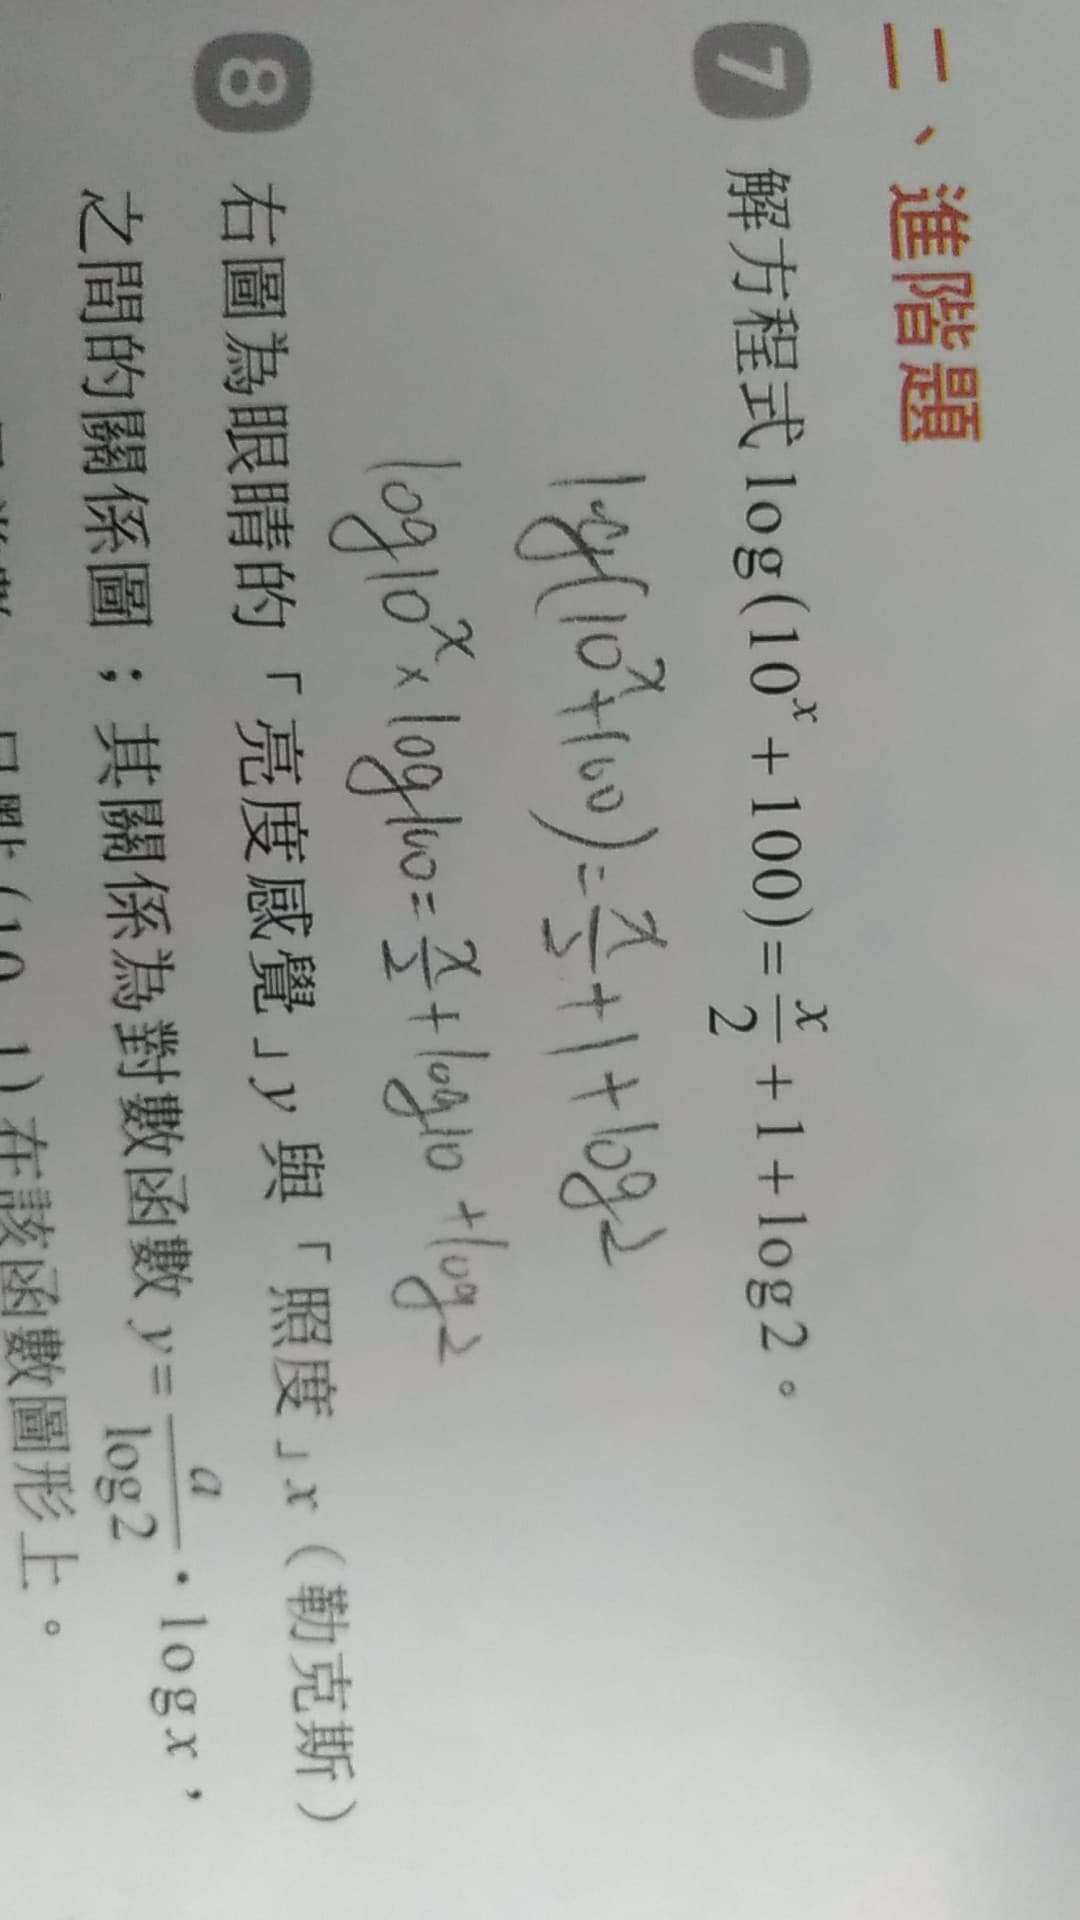 二、進階題
7 解方程式 log(10ˣ + 100) = x/2 + 1 + log2。
log(10ˣ+100) = x/2 + 1 + log2
log10ˣ × log100 = x/2 + log10 + log2
8 右圖為眼睛的「亮度感覺」y 與「照度」x(勒克斯)
之間的關係圖;其關係為對數函數 y = a/log2 · logx,
(10, 1) 在該函數圖形上。